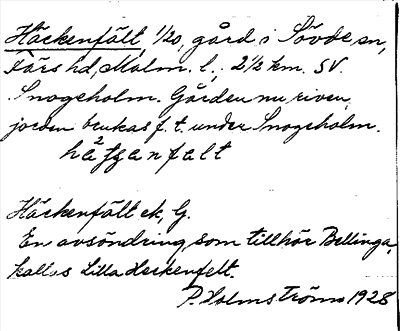 Häckenfält, 1/20, gård i Sövde sn,
Färs hd, Malm. l., 2 1/2 km. SV.
Snogeholm. Gården nu riven,
jorden brukas f. t. under Snogeholm.
Häckenfält ek, G.
En avsöndring, som tillhör Bellinga,
kallas Lilla Heckenfelt.
P. Holmström 1928